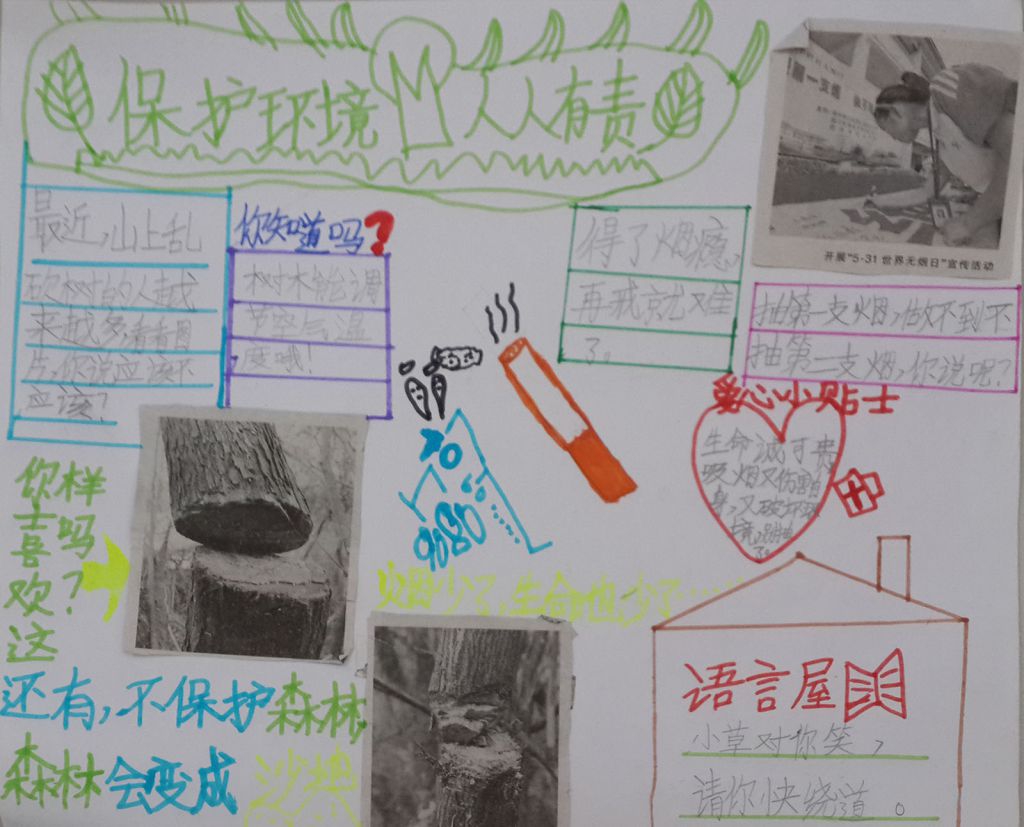 保护环境 人人有责
最近,山上乱
砍树的人越
来越多,看看图
片,你说应该不
应该?
你知道吗?
树木能调
节空气温
度哦!
得了烟瘾,
再戒就难
了。
开展“5·31世界无烟日”宣传活动
抽第一支烟,做不到不
抽第二支烟,你说呢?
爱心小贴士
生命诚可贵
吸烟又伤害自
身,又破坏环
境,
了。
你样
喜吗
欢?
这
烟少了,生命也少了……
还有,不保护森林,
森林会变成沙漠
语言屋
小草对你笑,
请你快绕道。